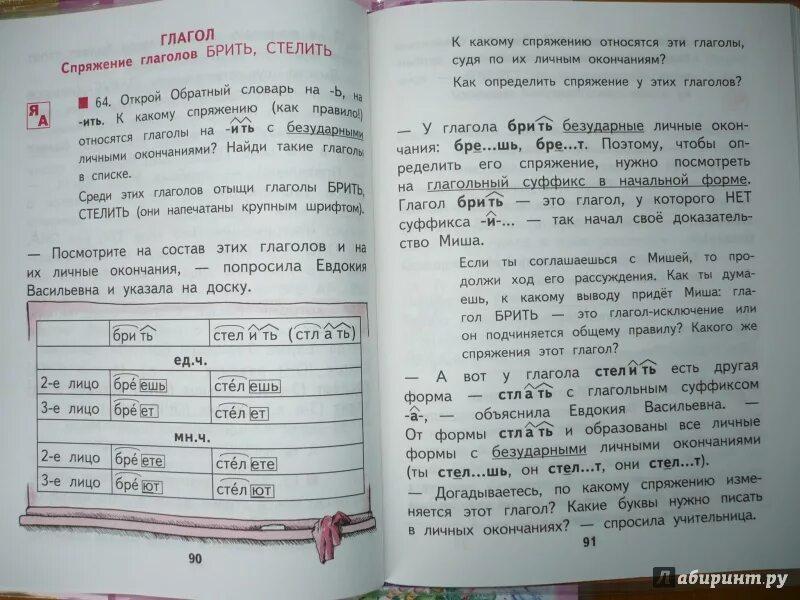 ГЛАГОЛ
Спряжение глаголов БРИТЬ, СТЕЛИТЬ
Я
А
64. Открой Обратный словарь на -Ь, на
-ить. К какому спряжению (как правило!)
относятся глаголы на -ить с безударными
личными окончаниями? Найди такие глаголы
в списке.
Среди этих глаголов отыщи глаголы БРИТЬ,
СТЕЛИТЬ (они напечатаны крупным шрифтом).
— Посмотрите на состав этих глаголов и на
их личные окончания, — попросила Евдокия
Васильевна и указала на доску.
брить стелить (стлать)
ед.ч.
2-е лицо бре́ешь сте́лешь
3-е лицо бре́ет сте́лет
мн.ч.
2-е лицо бре́ете сте́лете
3-е лицо бре́ют сте́лют
90
К какому спряжению относятся эти глаголы,
судя по их личным окончаниям?
Как определить спряжение у этих глаголов?
— У глагола брить безударные личные окон-
чания: бре...шь, бре...т. Поэтому, чтобы оп-
ределить его спряжение, нужно посмотреть
на глагольный суффикс в начальной форме.
Глагол брить — это глагол, у которого НЕТ
суффикса -и-... — так начал своё доказатель-
ство Миша.
Если ты соглашаешься с Мишей, то про-
должи ход его рассуждения. Как ты дума-
ешь, к какому выводу придёт Миша: гла-
гол БРИТЬ — это глагол-исключение или
он подчиняется общему правилу? Какого же
спряжения этот глагол?
— А вот у глагола стелить есть другая
форма — стлать с глагольным суффиксом
-а-, — объяснила Евдокия Васильевна. —
От формы стлать и образованы все личные
формы с безударными личными окончаниями
(ты стел...шь, он стел...т, они стел...т).
— Догадываетесь, по какому спряжению изме-
няется этот глагол? Какие буквы нужно писать
в личных окончаниях? — спросила учительница.
91
Лабиринт.ру